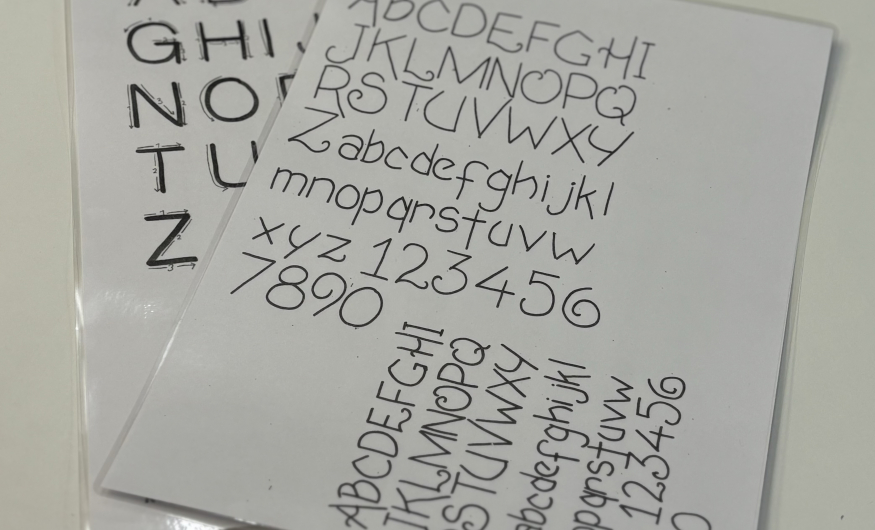 G H I
N O
T U
Z
ABCDEFGHI
JKLMNOPQ
RSTUVWXY
Zabcdefghijkl
mnopqrstuvw
xyz 123456
7890
ABCDEFGHI
JKLMNOPQ
STUVWXY
abcdefghijkl
pqrstuvw
123456